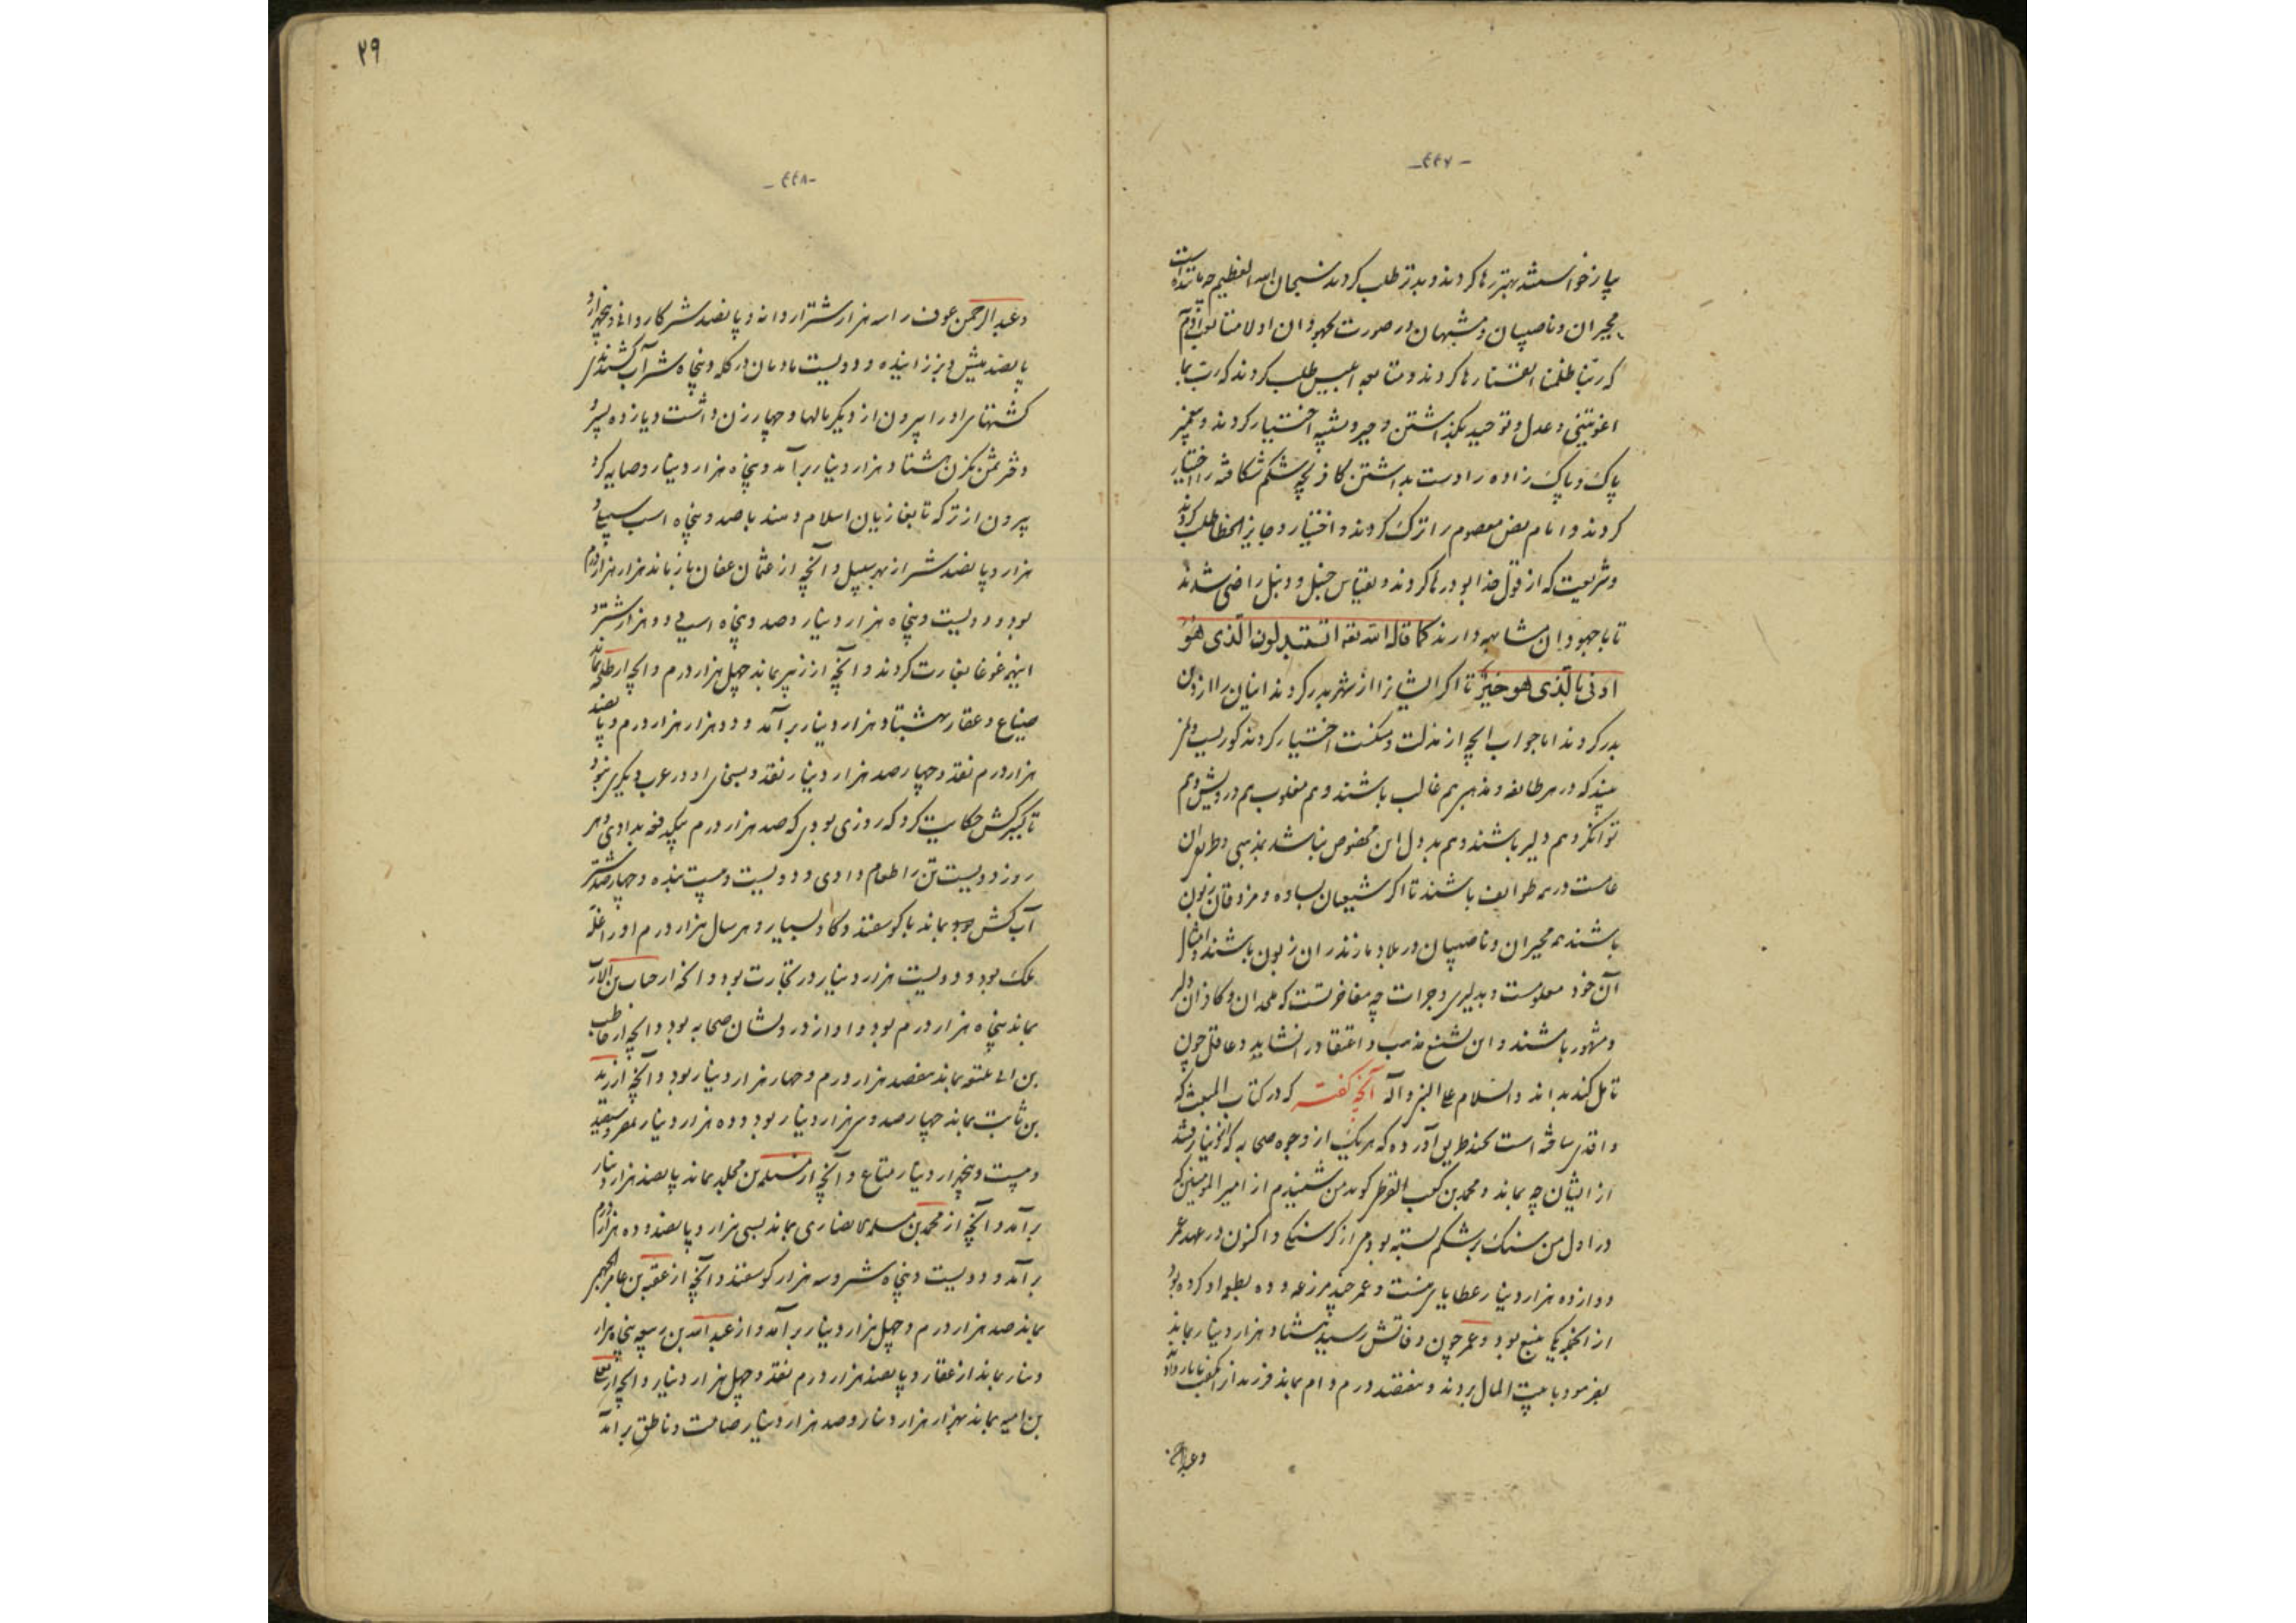 -۴۴۷-
پیاز خواستند بهتر رها کردند و بدتر طلب کردند سبحان الله العظیم چه مانند است
مجبران و ناصبیان و مشبهان در صورت جهودان اولا متابعت آدم
که ربنا ظلمنا انفسنا رها کردند و متابعه ابلیس طلب کردند که رب بما
اغویتنی و عدل و توحید بگذاشتن و جبر و تشبیه اختیار کردند و پیغمبر
پاک و پاک زاده را دست بداشتن کافر بچه شکم شکافته را اختیار
کردند و امام نص معصوم را ترک کردند و اختیار و جایز الخطا طلب کردند
و شریعت که از قول خدا بود رها کردند و بقیاس حنبل و دنبل راضی شدند
تا با جهودان مشابهه دارند کما قال الله تعه اتستبدلون الذی هو
ادنی بالذی هو خیر تا اگر ایشانرا از شهر بدر کردند اینان را از دین
بدر کردند اما جواب آنچه از مذلت و مسکنت اختیار کردند کور نیست و
بیند که در هر طائفه و مذهب هم غالب باشند و هم مغلوب هم درویش و هم
توانگر و هم دلیر باشند و هم بد دل این مخصوص نباشد بمذهبی و طریق آن
عامست در همه طوایف باشند تا اگر شیعیان بساوه و مزدقان زبون
باشند هم مجبران و ناصبیان در بلاد مازندران زبون باشند و امثال
آن خود معلومست و بدلیری و جرات چه مفاخرتست که ملحدان و کافران دلیر
و مشهور باشند و این تشنیع مذهب و اعتقاد را نشاید و عاقل چون
تامل کند بداند و السلام علی النبی و آله آنچه گفته که در کتاب المبعث که
واقدی ساخته است بچند طریق آورده که هر یک از وجوه صحابه که از دنیا رفتند
از ایشان چه بماند و محمد بن کعب القرظی گوید من شنیدم از امیر المومنین که
در اول من سنک بر شکم بسته بودمی از گرسنگی و اکنون در عهد عمر
دوازده هزار دینار عطایای منست و عمر چند مزرعه و ده بطعمه او کرده بود
از آنجمله یکی ینبع بود و عمر چون وفاتش رسید هشتاد هزار دینار بماند
بفرمود با بیت المال بردند و هفتصد درم وام بماند فرزند از آن
وعبدالرحمن
۲۹
-۴۴۸-
وعبدالرحمن عوف را سه هزار شتر اروانه و پانصد شتر کاروانی و پنجهزار و
پانصد میش و بز زاینده و دویست مادیان در گله و پنجاه شتر آب کشندی
کشتهای او را بیرون از دیگر مالها و چهار زن داشت و یازده پسر و
دختر ثمن یکزن هشتاد هزار دینار برآمد و پنجاه هزار دینار وصایه کرد
بیرون از ترکه تا بغازیان اسلام دهند با صد و پنجاه اسب سبیل و
هزار و پانصد شتر از بهر سبیل و آنچه از عثمان عفان باز ماند هزار هزار درم
بود و دویست و پنجاه هزار دینار و صد و پنجاه اسب و دو هزار شتر و
اینهمه غوغا بغارت کردند و آنچه از زبیر بماند چهل هزار درم و آنچه از طلحه بماند
ضیاع و عقار هشتاد هزار دینار برآمد و دو هزار هزار درم و پانصد
هزار درم نقد و چهار صد هزار دینار نقد و بسخای او در عرب دیگری نبود
تا کنیزکش حکایت کرد که روزی بودی که صد هزار درم بیکدفعه بدادی و هر
روز دویست تن را طعام دادی و دویست و بیست بنده و چهارصد شتر
آب کش بماند با گوسفند و گاو بسیار و هر سال هزار درم او را غله
ملک بود و دویست هزار دینار در تجارت بود و آنچه از خباب بن الارت
بماند پنجاه هزار درم بود و او از درویشان صحابه بود و آنچه از حاطب
بن ابی بلتعه بماند هفصد هزار درم و چهار هزار دینار بود و آنچه از زید
بن ثابت بماند چهار صد و سی هزار دینار بود و ده هزار دینار
و بیست و پنجهزار دینار متاع و آنچه از مسلمة بن مخلد بماند پانصد هزار دینار
برآمد و آنچه از محمد بن مسلمه انصاری بماند بسی هزار و پانصد و ده هزار درم
برآمد و دویست و پنجاه شتر و سه هزار گوسفند و آنچه از عقبه بن عامر الجهنی
بماند صد هزار درم و چهل هزار دینار برآمد و از عبدالله بن ربیعه پنجاه هزار
دینار بماند از عقار و پانصد هزار درم نقد و چهل هزار دینار و آنچه از یعلی
بن امیه بماند هزار هزار دینار و صد هزار دینار صامت و ناطق برآمد